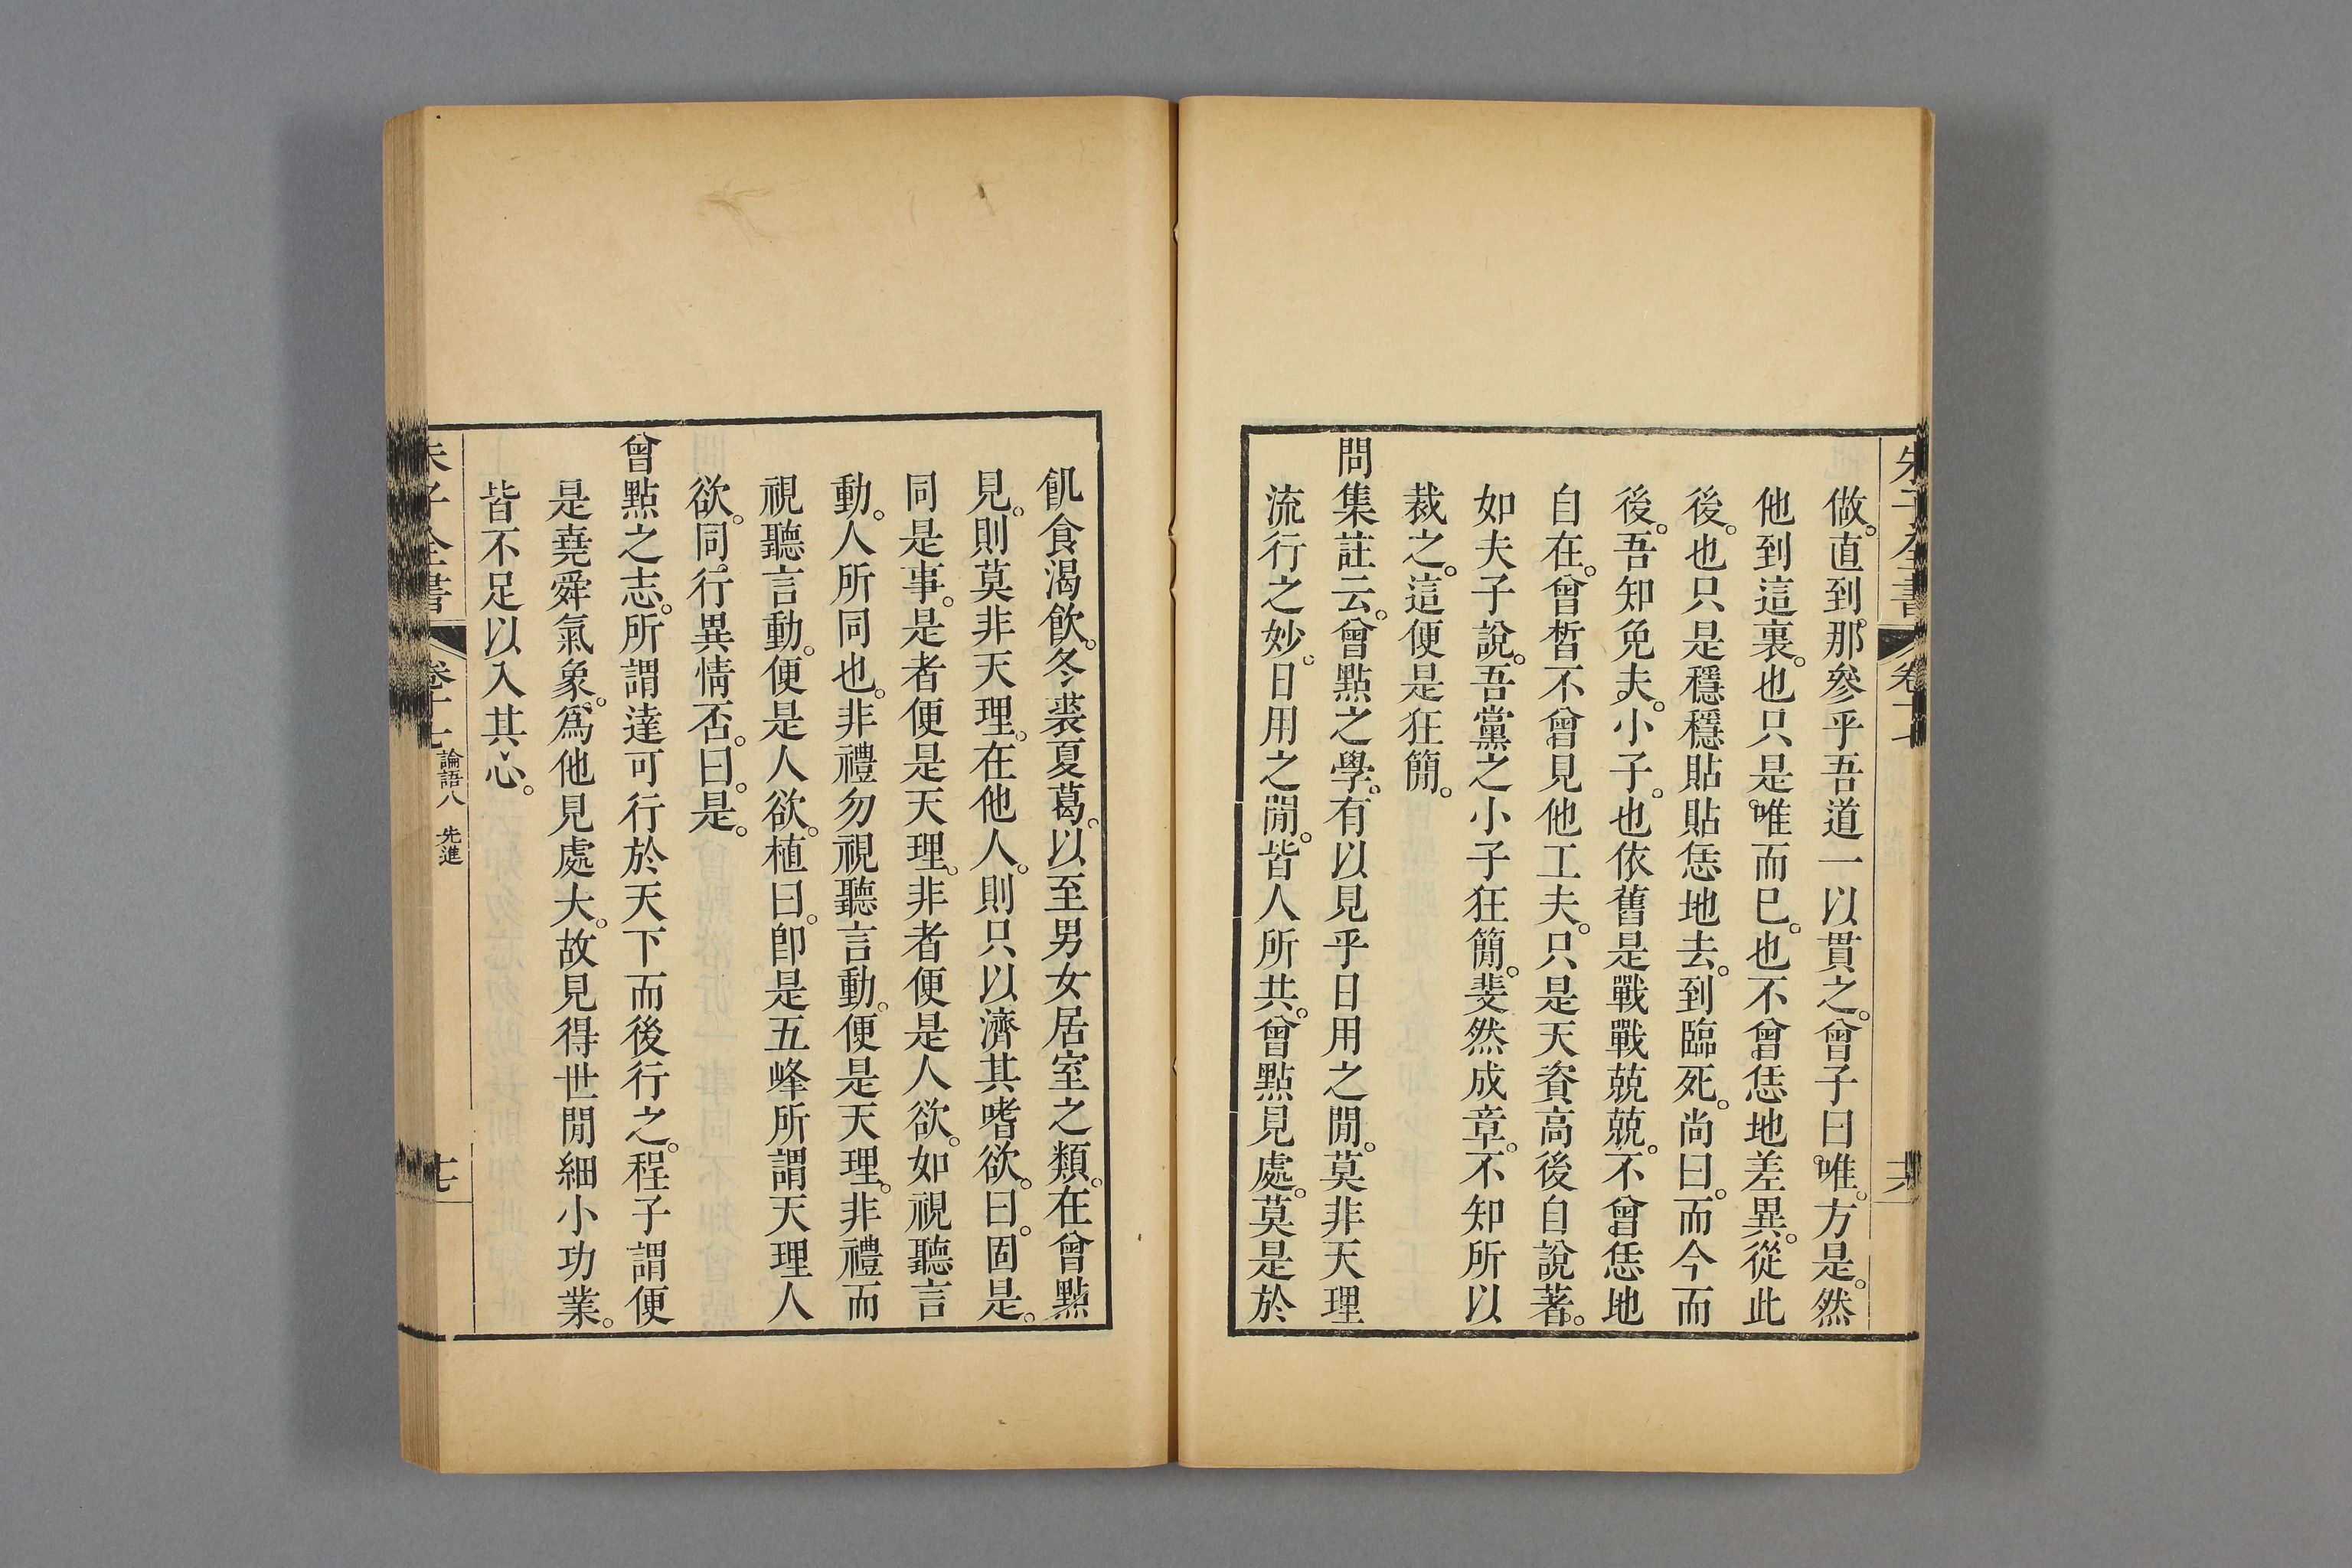 朱子全書
卷十七
十六
做。直到那參乎吾道一以貫之。曾子曰唯。方是。然
他到這裏。也只是唯而已。也不曾恁地差異。從此
後。也只是穩穩貼貼恁地去。到臨死。尚曰。而今而
後。吾知免夫。小子。也依舊是戰戰兢兢。不曾恁地
自在。曾晳不曾見他工夫。只是天資高後自說著。
如夫子說。吾黨之小子狂簡。斐然成章。不知所以
裁之。這便是狂簡。
問集註云。曾點之學。有以見乎日用之閒。莫非天理
流行之妙。日用之閒。皆人所共。曾點見處。莫是於
飢食渴飮。冬裘夏葛。以至男女居室之類。在曾點
見。則莫非天理。在他人。則只以濟其嗜欲。曰。固是。
同是事。是者便是天理。非者便是人欲。如視聽言
動。人所同也。非禮勿視聽言動。便是天理。非禮而
視聽言動。便是人欲。植曰。卽是五峰所謂天理人
欲。同行異情否。曰。是。
曾點之志。所謂達可行於天下而後行之。程子謂便
是堯舜氣象。爲他見處大。故見得世閒細小功業。
皆不足以入其心。
朱子全書
卷十七
論語八 先進
七